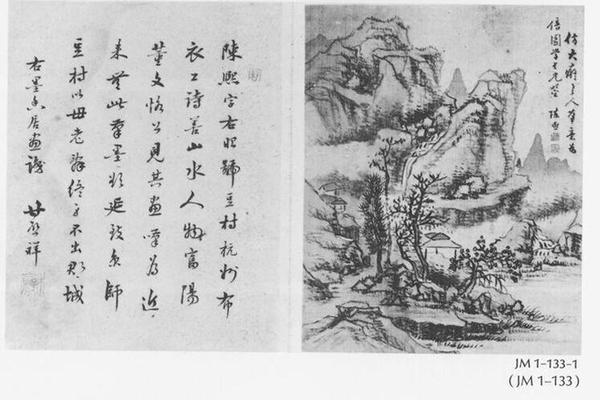 仿大癡道人筆意為
倍園學士 陳熙
陳熙字右昭號豆村杭州布
衣工詩善山水人物富陽
董文恪公見其畫嘆為近
來無此筆墨欲延致京師
豆村以母老辭終身不出郡城
右墨香居畫識 甘啓祥
JM 1-133-1
(JM 1-133)